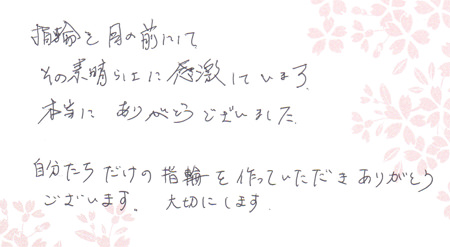 指輪を目の前にして
その素晴らしさに感激しています.
本当に ありがとうございました.
自分たちだけの指輪を作っていただきありがとう
ございます. 大切にします.